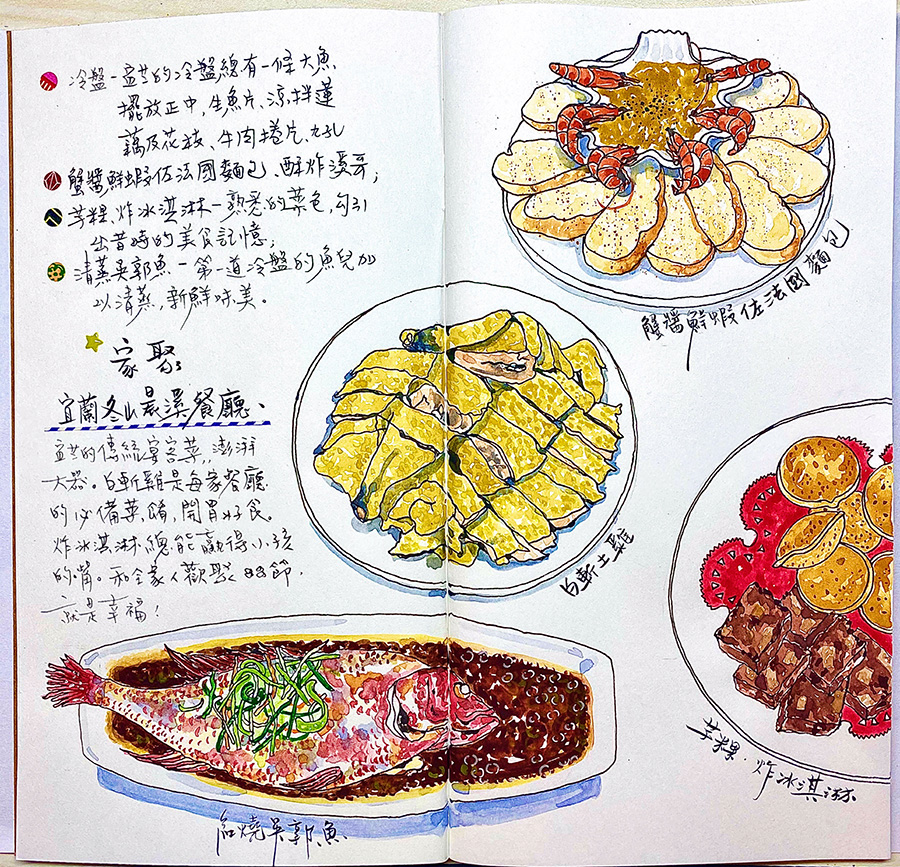 冷盤－宜蘭的冷盤總有一條大魚
擺放正中,生魚片、涼拌蓮
藕及花枝、牛肉捲片、九孔
蟹醬鮮蝦佐法國麵包、酥炸溪哥;
芋粿、炸冰淇淋－熟悉的菜色,勾引
出昔時的美食記憶;
清蒸吳郭魚－第一道冷盤的魚兒加
以清蒸,新鮮味美。
家聚
宜蘭冬山 溪餐廳、
的傳統宴客菜,澎湃
大器。白斬雞是每家餐廳
的必備菜餚,開胃好食。
炸冰淇淋總能贏得小孩
的嘴。和全家人歡聚88節,
就是幸福!
蟹醬鮮蝦佐法國麵包
白斬土雞
芋粿.炸冰淇淋
紅燒吳郭魚